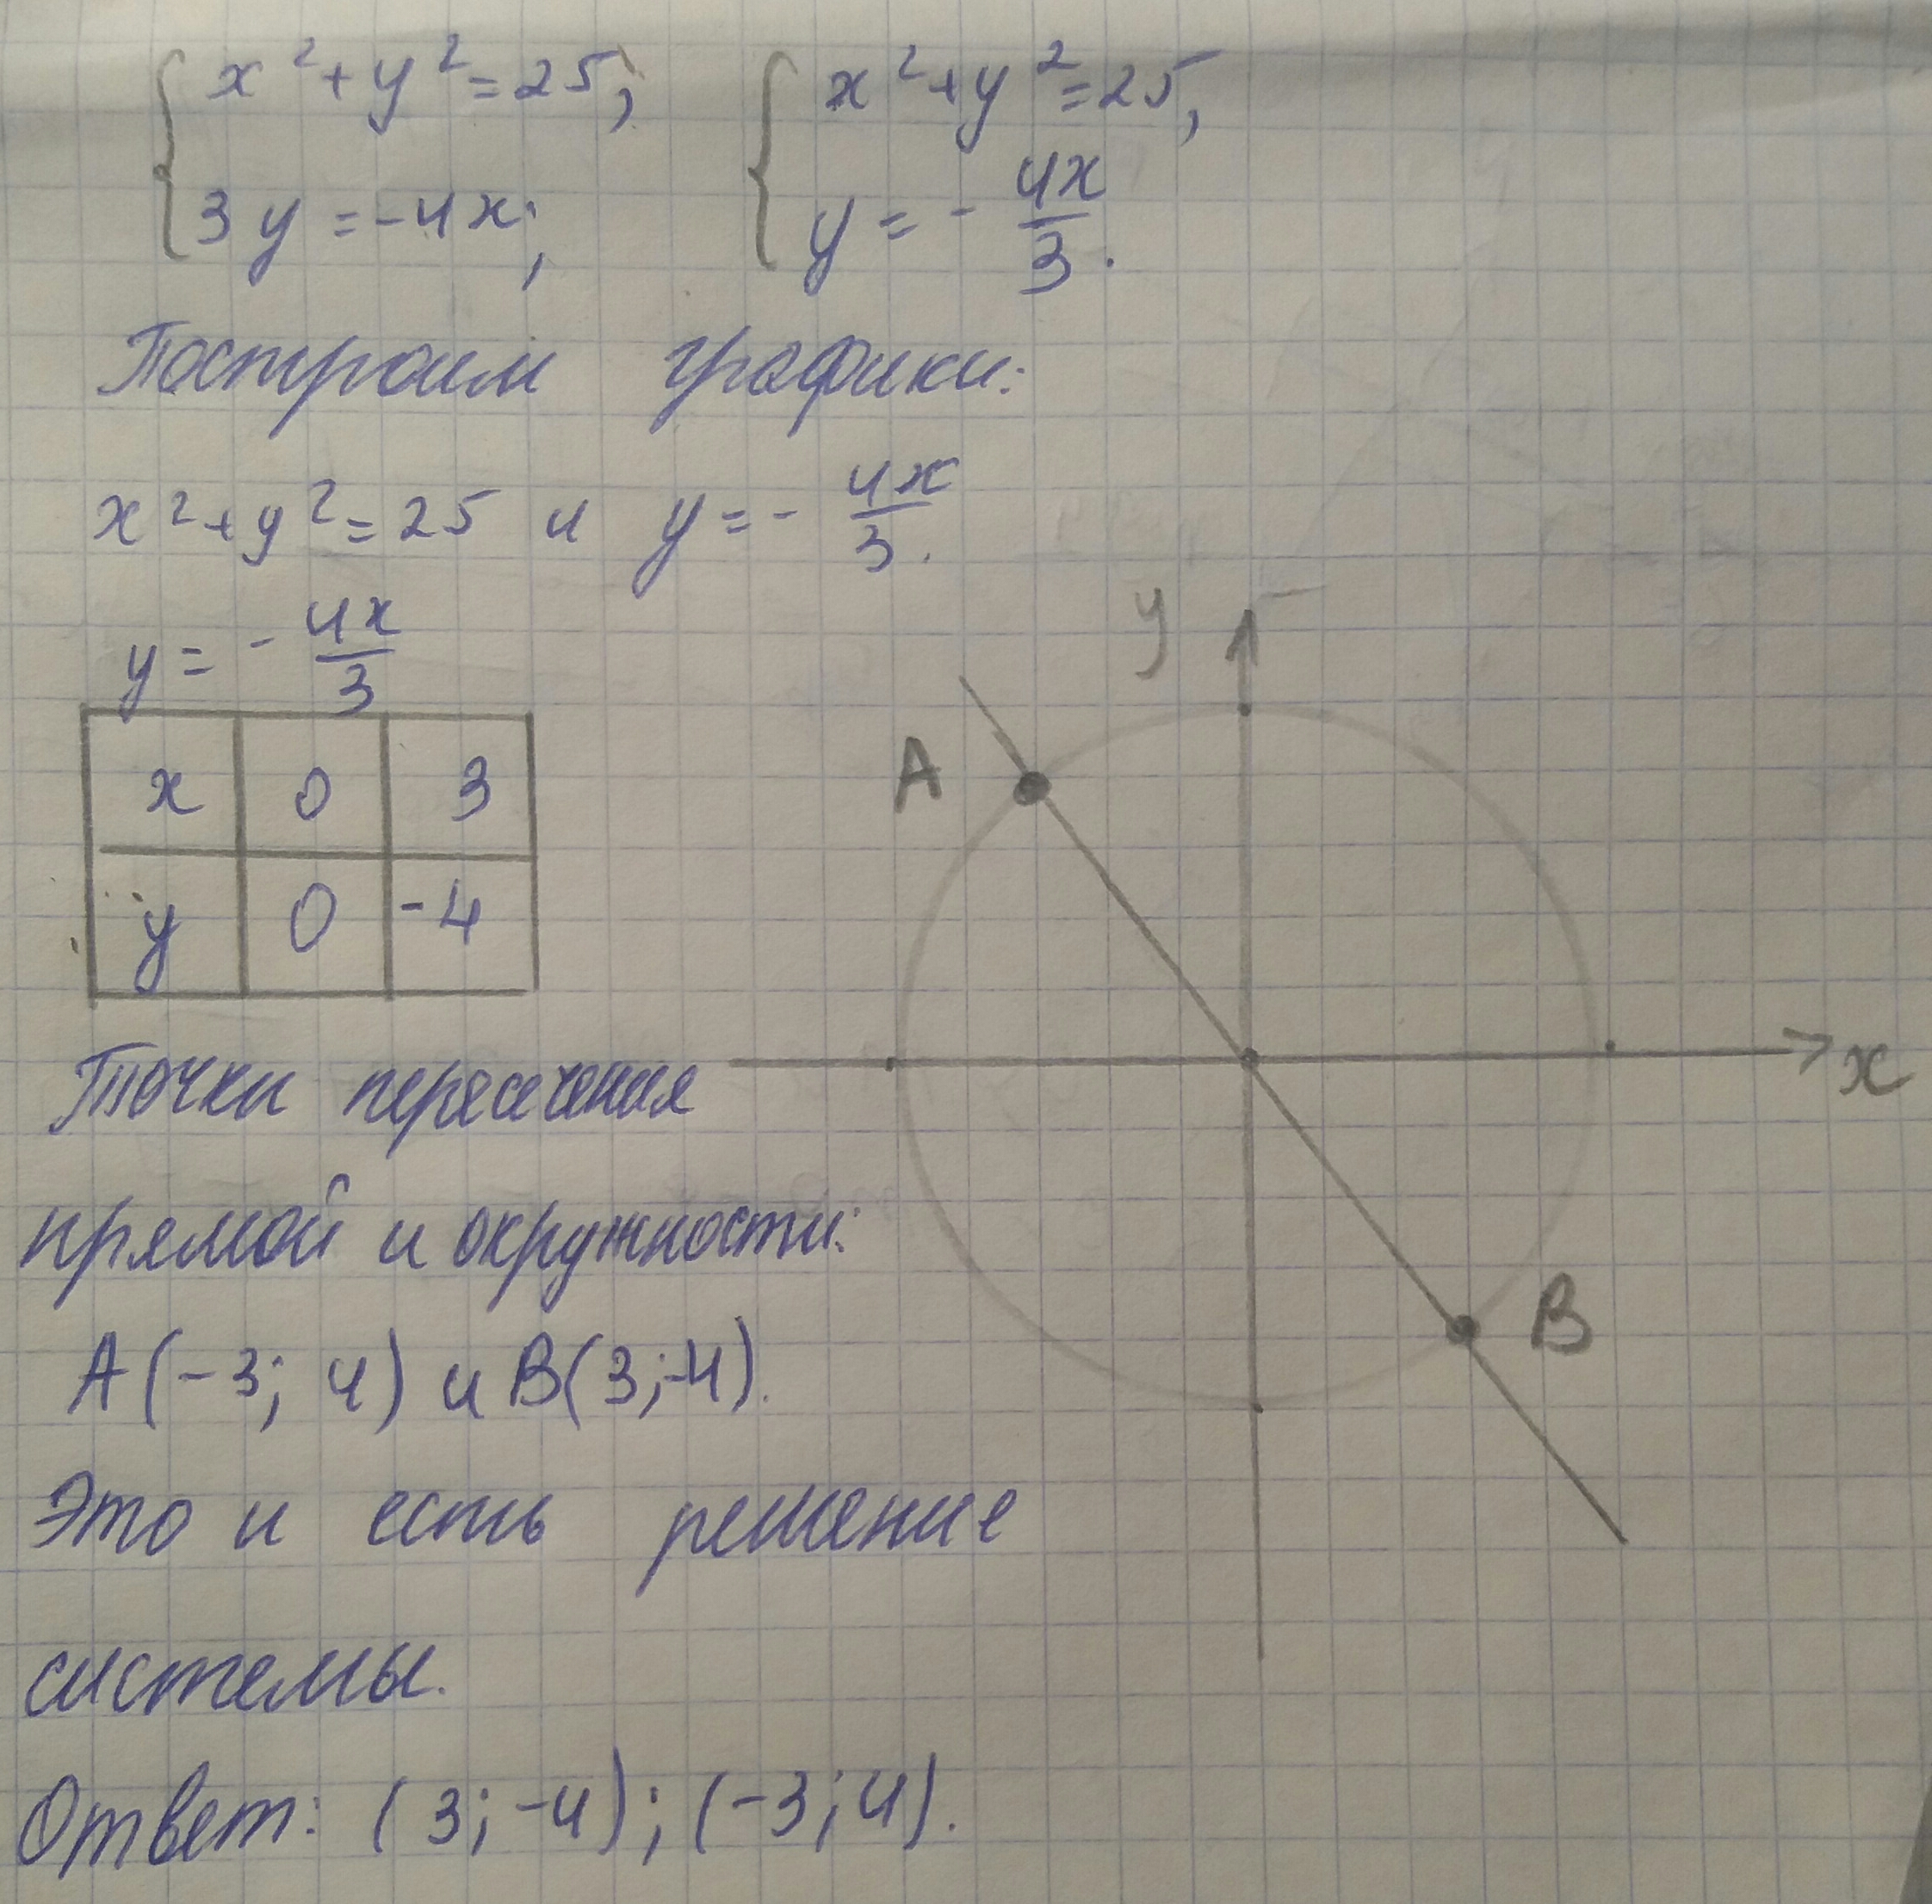 { x² + y² = 25;   { x² + y² = 25,
{ 3y = -4x;   { y = - 4x/3.
Построим графики:
x² + y² = 25 и y = - 4x/3.
y = - 4x/3
x 0 3
y 0 -4
y
A
x
B
Точки пересечения
прямой и окружности:
A(-3; 4) и B(3;-4).
Это и есть решение
системы.
Ответ: (3; -4); (-3; 4).